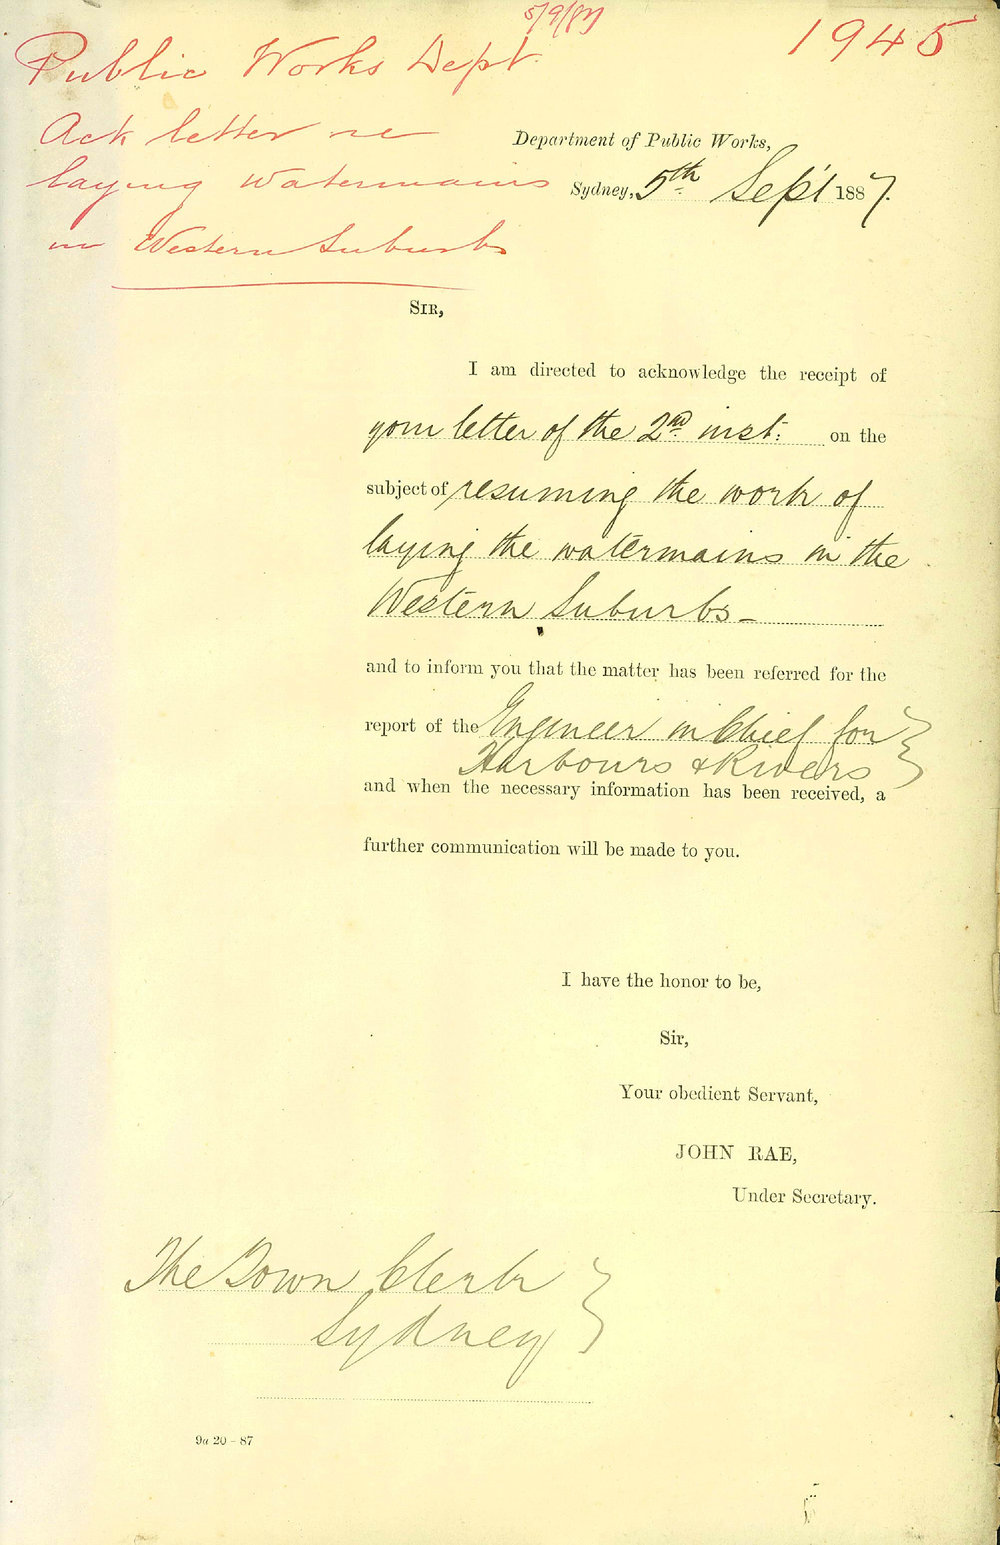 5/9/87
1945
Public Works Dept.
Ack letter re
laying Watermains
in Western Suburbs
Department of Public Works,
Sydney, 5th Sept 1887.
SIR,
I am directed to acknowledge the receipt of
your letter of the 2nd inst: on the
subject of resuming the work of
laying the watermains in the
Western Suburbs—
and to inform you that the matter has been referred for the
report of the Engineer in Chief for
Harbours & Rivers
and when the necessary information has been received, a
further communication will be made to you.
I have the honor to be,
Sir,
Your obedient Servant,
JOHN RAE,
Under Secretary.
The Town Clerk
Sydney
9a 20 - 87